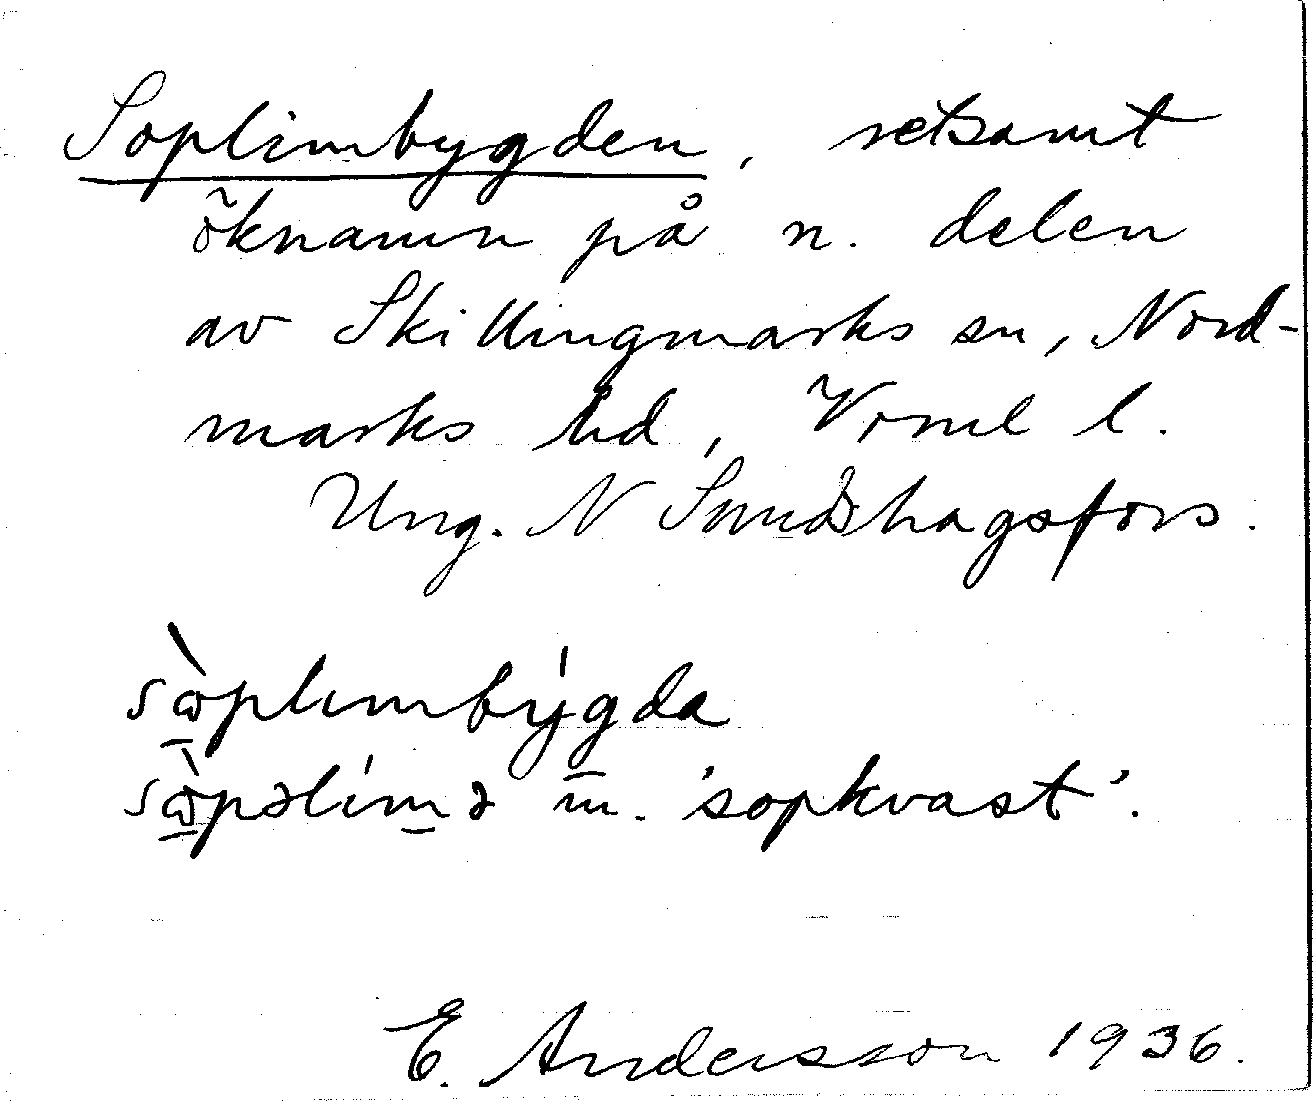 Soplimbygden, retsamt
öknamn på n. delen
av Skillingmarks sn, Nord-
marks hd, Vrml l.
Ung. N Sundshagsfors.
sɷ̀plımbýgda
sɷ̀pəlímə m. 'sopkvast'.
E. Andersson 1936.